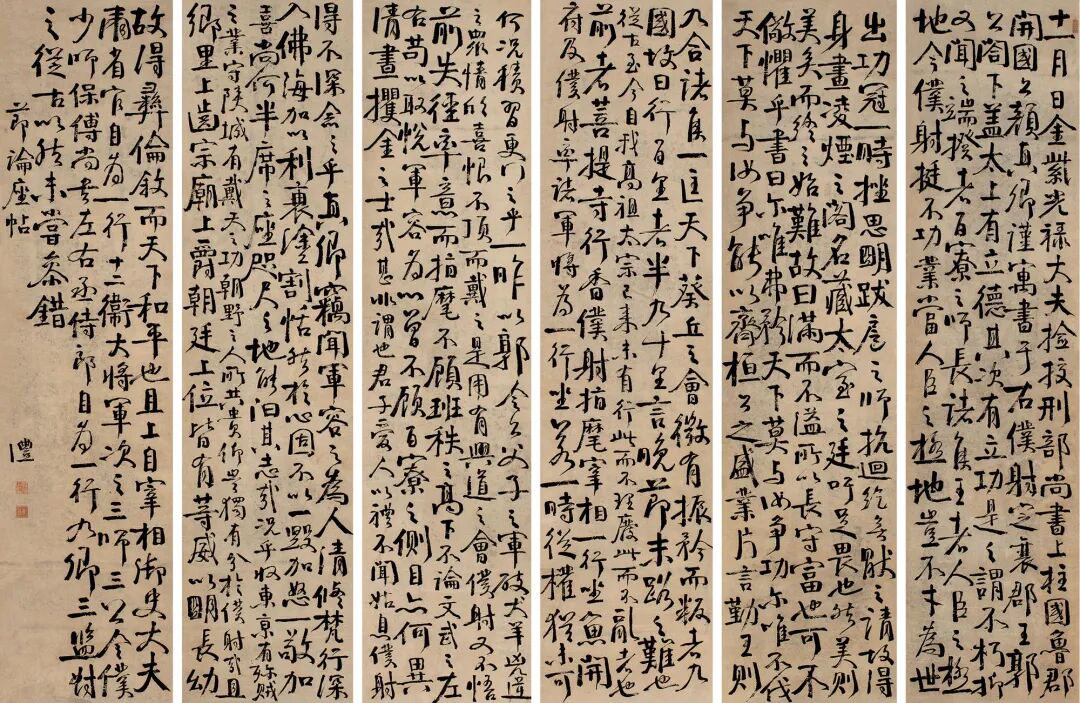 十一月日金紫光祿大夫撿挍刑部尚書上柱國魯郡
開國公顏真卿謹寓書于右僕射定襄郡王郭
公閣下盖太上有立德其次有立功是之謂不朽抑
又聞之端揆者百寮之師長諸侯王者人臣之極
地今僕射挺不功業當人臣之極地豈不才為世
出功冠一時挫思明跋扈之師抗迴紇無猒之請故得
身畫凌煙之閣名藏太室之廷吁足畏也然美則
美矣而終之始難故曰滿而不溢所以長守富也可不
儆懼乎書曰尔唯弗矜天下莫与汝爭功尔唯不伐
天下莫与汝爭能以齊桓公之盛業片言勤王則
九合諸侯一匡天下葵丘之會微有振矜而叛者九
國故曰行百里者半九十里言晚節末路之難也
從古至今自我高祖太宗已來未有行此而不理廢此而不亂者也
前者菩提寺行香僕射指麾宰相一行坐魚開
府及僕射率諸軍將為一行坐若一時從權猶未可
何況積習更行之乎一昨以郭令公父子之軍破犬羊凶逆
之眾情欣喜恨不頂而戴之是用有興道之會僕射又不悟
前失徑率意而指麾不顧班秩之高下不論文武之左
右苟以取悅軍容為心曾不顧百寮之側目亦何異
清晝攫金之士哉甚非謂也君子愛人以禮不聞姑息僕射
得不深念之乎真卿竊聞軍容之為人清修梵行深
入佛海加以利衰塗割恬然於心固不以一毀加怒一敬加
喜尚何半席之座咫尺之地能汩其志哉況乎收東京有殄賊
之業守陝城有戴天之功朝野之人所共貴仰豈獨有分於僕射哉且
鄉里上齒宗廟上爵朝廷上位皆有等威以明長幼
故得彝倫敘而天下和平也且上自宰相御史大夫
兩省官自為一行十二衛大將軍次之三師三公令僕
少師保傅尚書左右丞侍郎自為一行九卿三監對
之從古以然未嘗參錯
節論座帖
灃